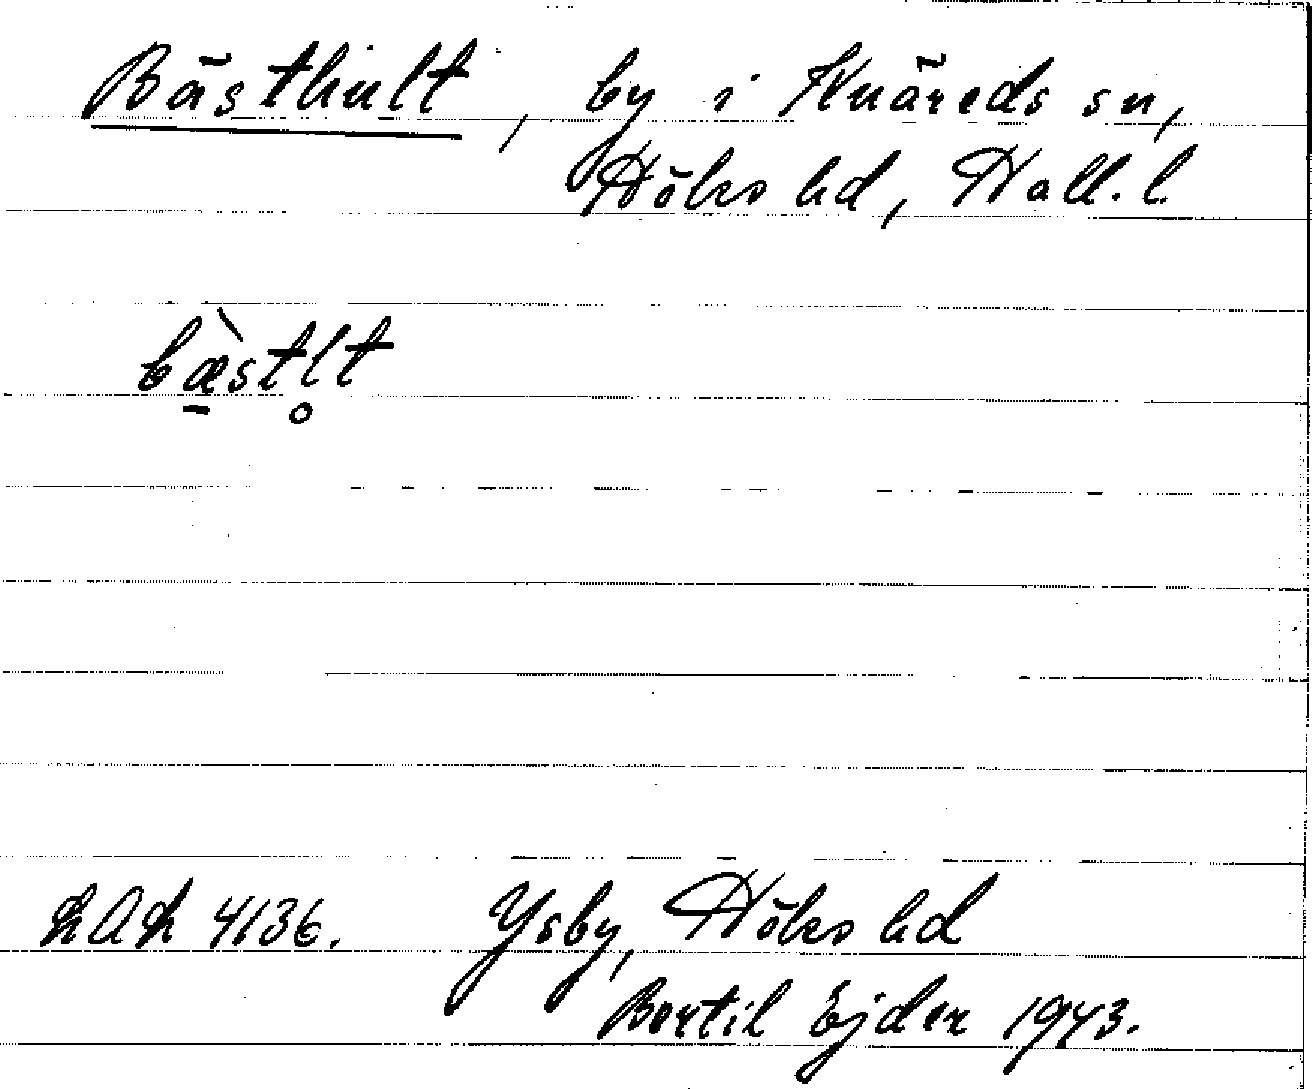 Bästhult, by i Knäreds sn,
Höks hd, Hall. l.
bæ̠̀stl̥t
LAL 4136. Ysby, Höks hd
Bertil Ejder 1943.